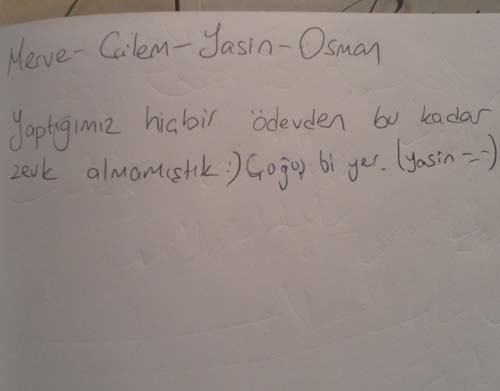 Merve - Çilem - Yasin - Osman
Yaptığımız hiçbir ödevden bu kadar
zevk almamıştık :) Çoğoş bi yer. (yasin =.=)